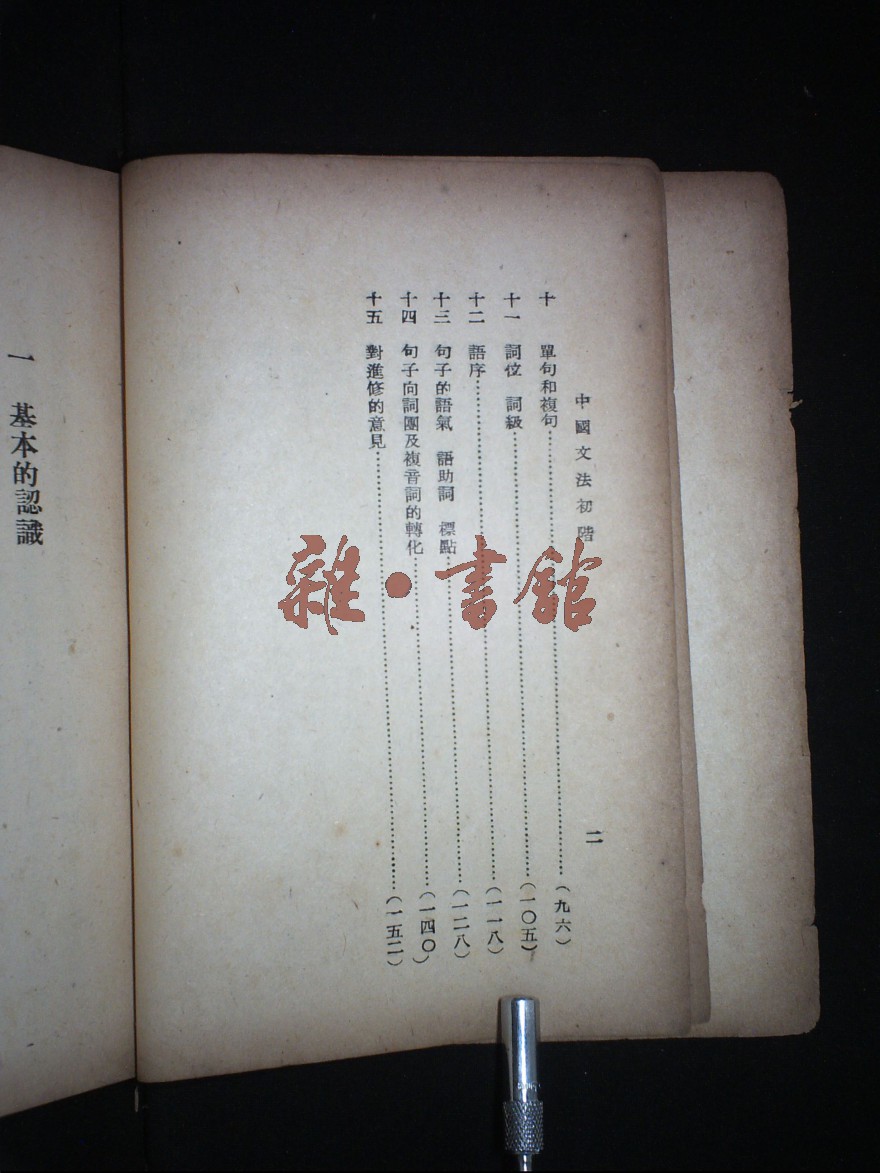 中國文法初階
二
十 單句和複句(九六)
十一 詞位 詞級(一〇五)
十二 語序(一一八)
十三 句子的語氣 語助詞 標點(一二八)
十四 句子向詞團及複音詞的轉化(一四〇)
十五 對進修的意見(一五二)
一 基本的認識
雜·書館